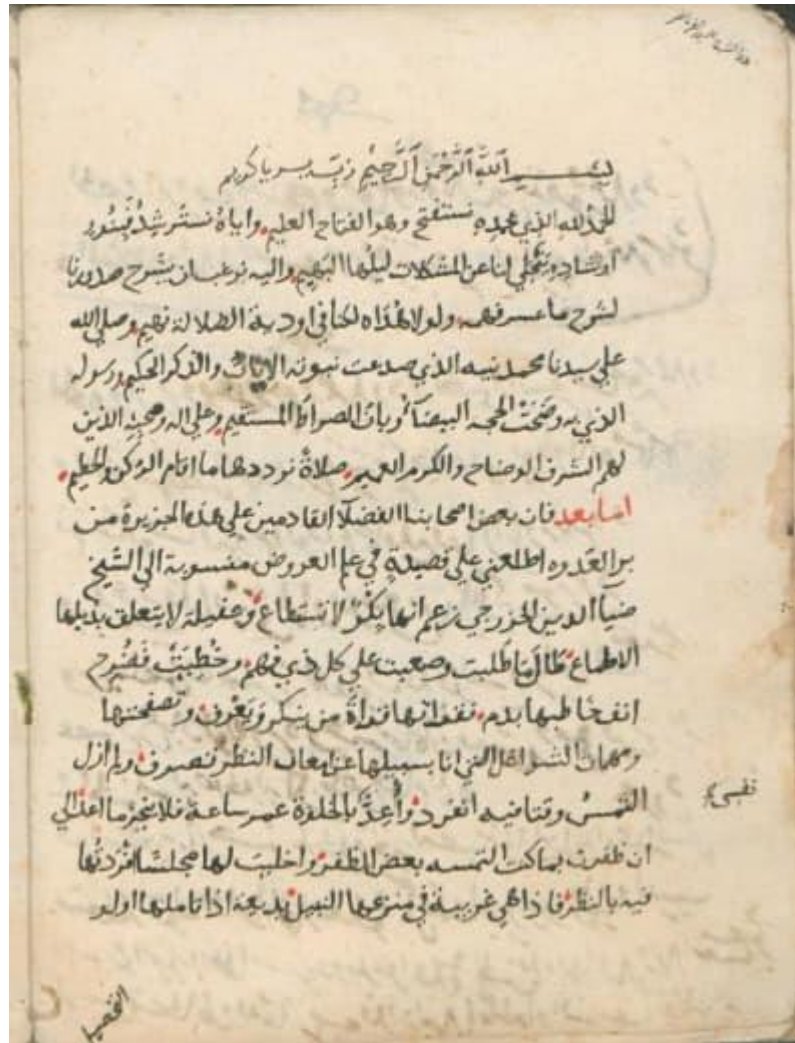 بسم الله الرحمن الرحيم رب يسر يا كريم
الحمد لله الذي بحمده نستفتح وهو الفتاح العليم واياه نسترشد فبنور
ارشاده تنجلي لنا عن المشكلات ليلها البهيم واليه نرغب ان يشرح صدورنا
لشرح ما عسر فهمه ولولا هداه لكنا في اودية الضلالة نهيم وصلى الله
علي سيدنا محمد نبيه الذي صدعت نبوته الايات والذكر الحكيم ورسوله
الذي به وضحت المحجه البيضآء وبان الصراط المستقيم وعلي اله وصحبه الذين
لهم الشرف الوضاح والكرم العميم صلاة نرددها ما اقام الركن والحطيم
اما بعد فان بعض اصحابنا الفضلآ القادمين علي هذه الجزيرة من
بر العدوه اطلعني علي قصيدة في علم العروض منسوبة الي الشيخ
ضيآ الدين الخزرجي زعم انها بكر لا تستطاع وعقيلة لا يتعلق بذيلها
الاطماع طال ما طلبت وصعبت علي كل ذي فهم وخطبت فضرج
انف خاطبها بدم فقراتها قراة من ينكر ويعرف وتصفحتها
ومهمات الشواغل التي انا بسبيلها عن امعان النظر تصرف ولم ازل
التمس وقتا فيه انفرد واعد بالخلوة عمر ساعة فلا ينجز ما اعد الي
ان ظفرت بما كنت التمسه بعض الظفر واخليت لها مجلسا فردتها
فيه بالنظر فاذا هي غريبة في منزعها النبيل بديعة اذا تاملها اولو